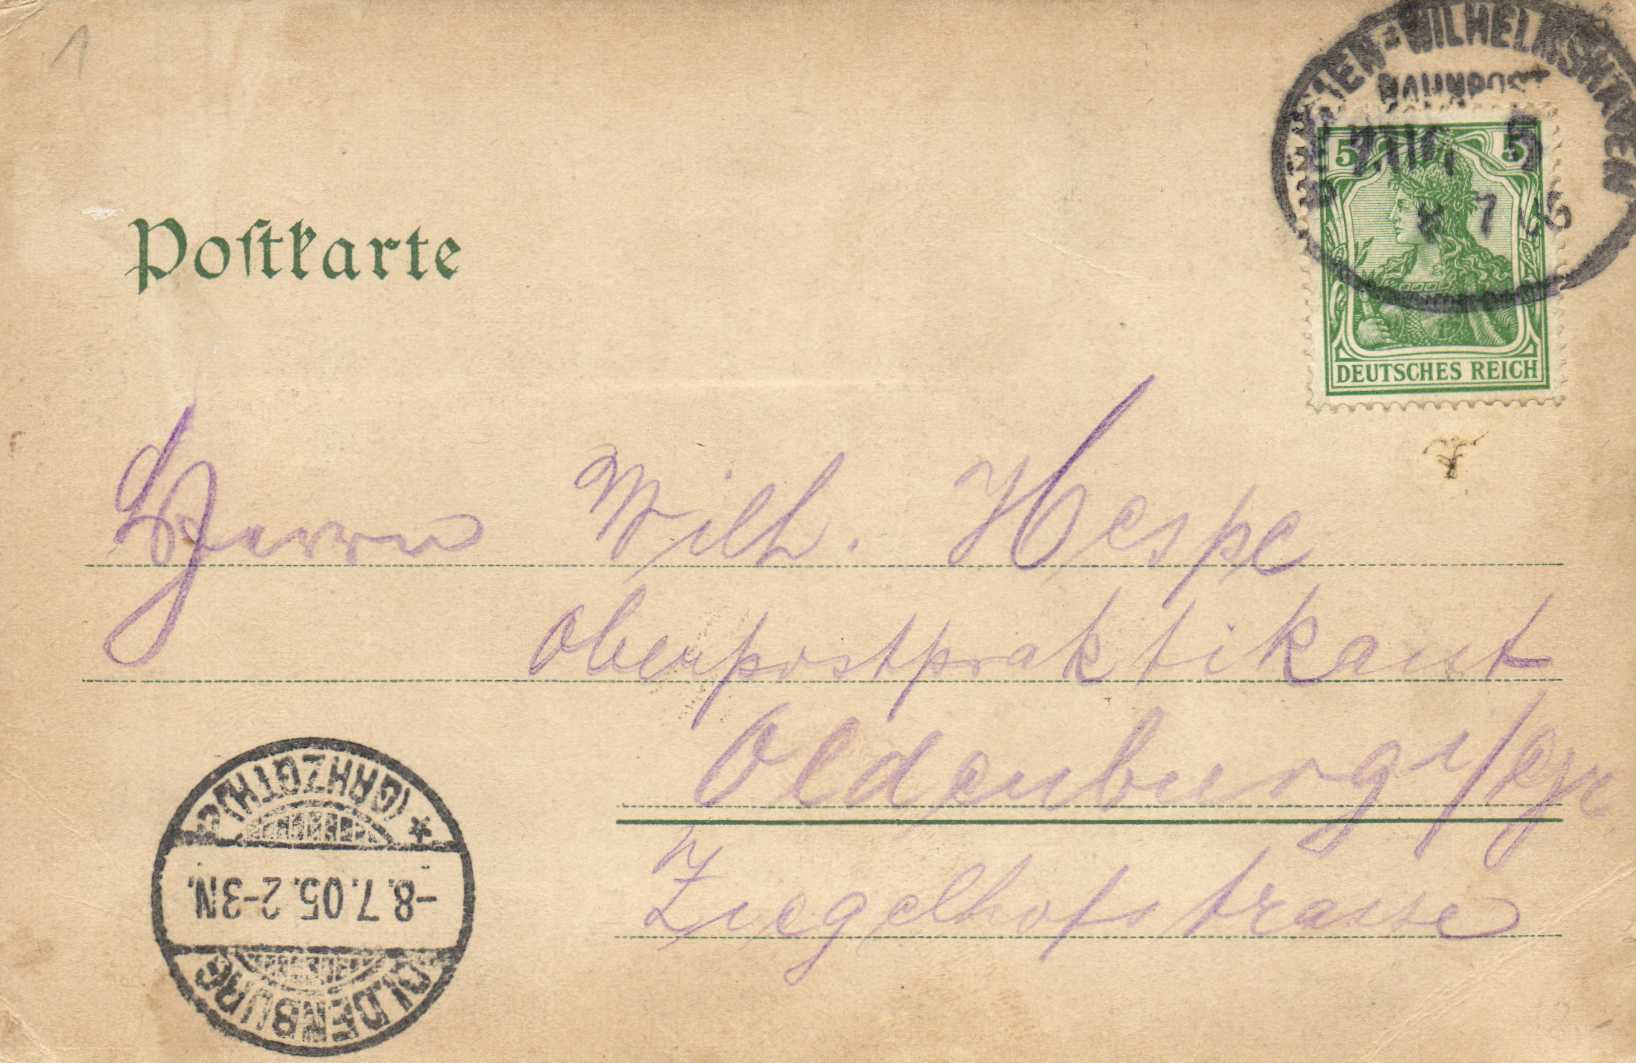 1
BREMEN=WILHELMSHAVEN
BAHNPOST
ZUG 5
8 7 05
5 5
DEUTSCHES REICH
Poſtkarte
Herrn Wilh. Hespe
Oberpostpraktikant
Oldenburg i/Gr
Ziegelhofstrasse
OLDENBURG
-8.7.05.2-3N.
* (GRHZGTH.)